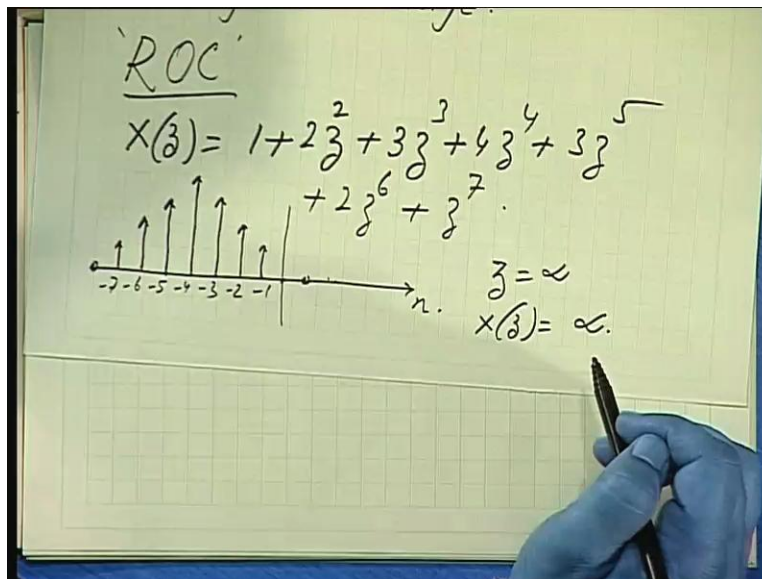 'ROC'
X(z) = 1 + 2z² + 3z³ + 4z⁴ + 3z⁵
+ 2z⁶ + z⁷.
-7 -6 -5 -4 -3 -2 -1
n.
z = ∝
X(z) = ∝.